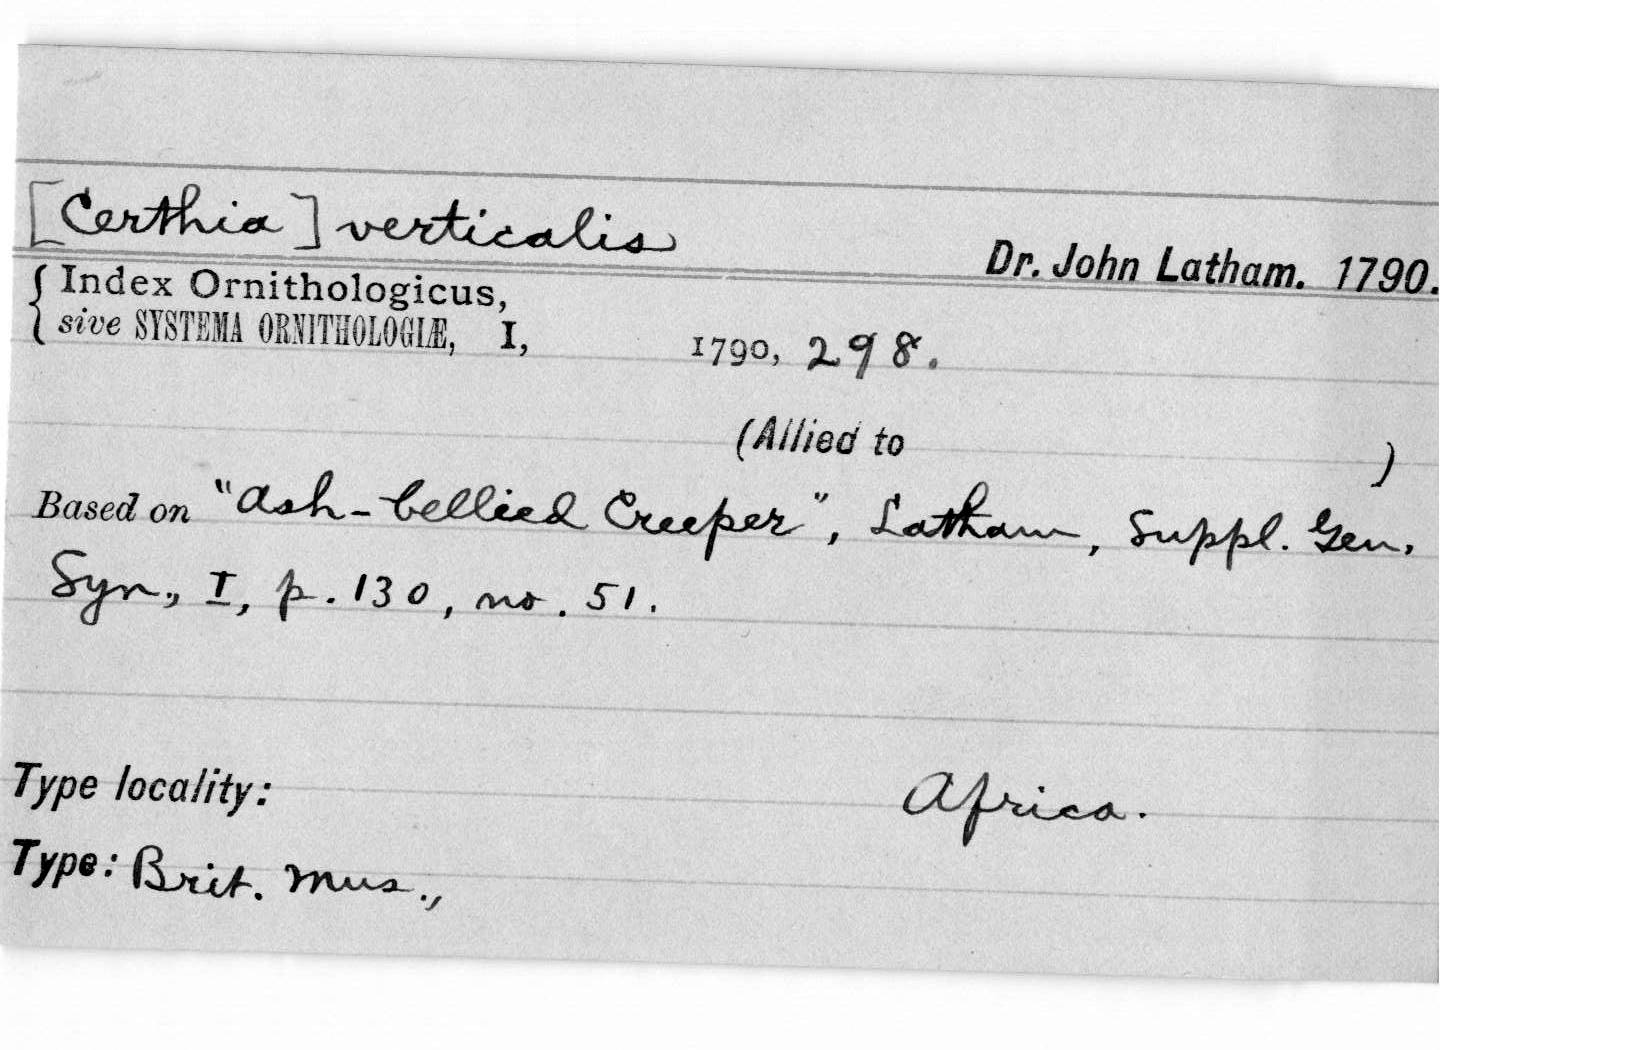 [Certhia] verticalis
Dr. John Latham. 1790.
{ Index Ornithologicus,
sive SYSTEMA ORNITHOLOGIÆ, I, 1790, 298.
(Allied to )
Based on "Ash-bellied Creeper", Latham, Suppl. Gen.
Syn., I, p. 130, no. 51.
Type locality: Africa.
Type: Brit. Mus.,